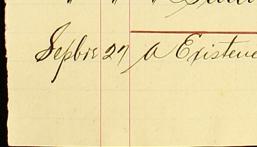 Sepbre 27 A Existenc